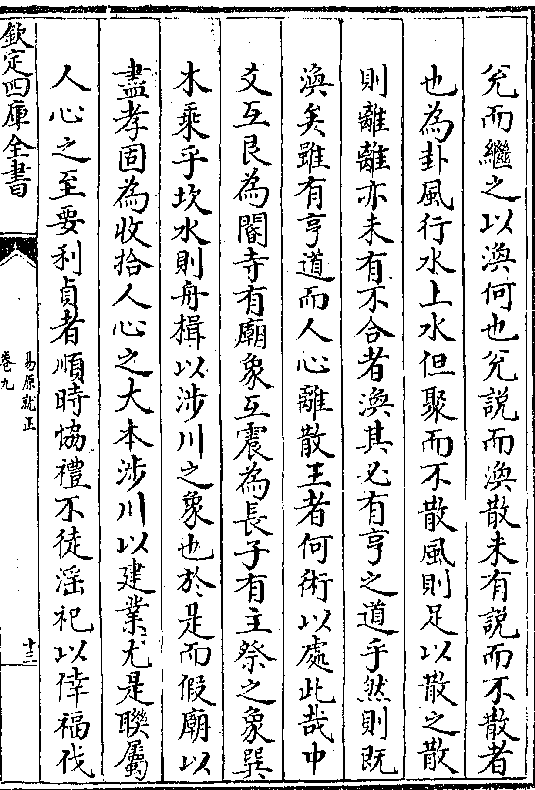 兌而繼之以渙何也兌說而渙散未有說而不散者
也為卦風行水上水但聚而不散風則足以散之散
則離離亦未有不合者渙其必有亨之道乎然則既
渙矣雖有亨道而人心離散王者何術以處此哉中
爻互艮為閽寺有廟象互震為長子有主祭之象巽
木乘乎坎水則舟楫以涉川之象也於是而假廟以
盡孝固為收拾人心之大本涉川以建業尤是聯屬
人心之至要利貞者順時恊禮不徒淫祀以倖福伐
欽定四庫全書
易原就正
卷九
十三